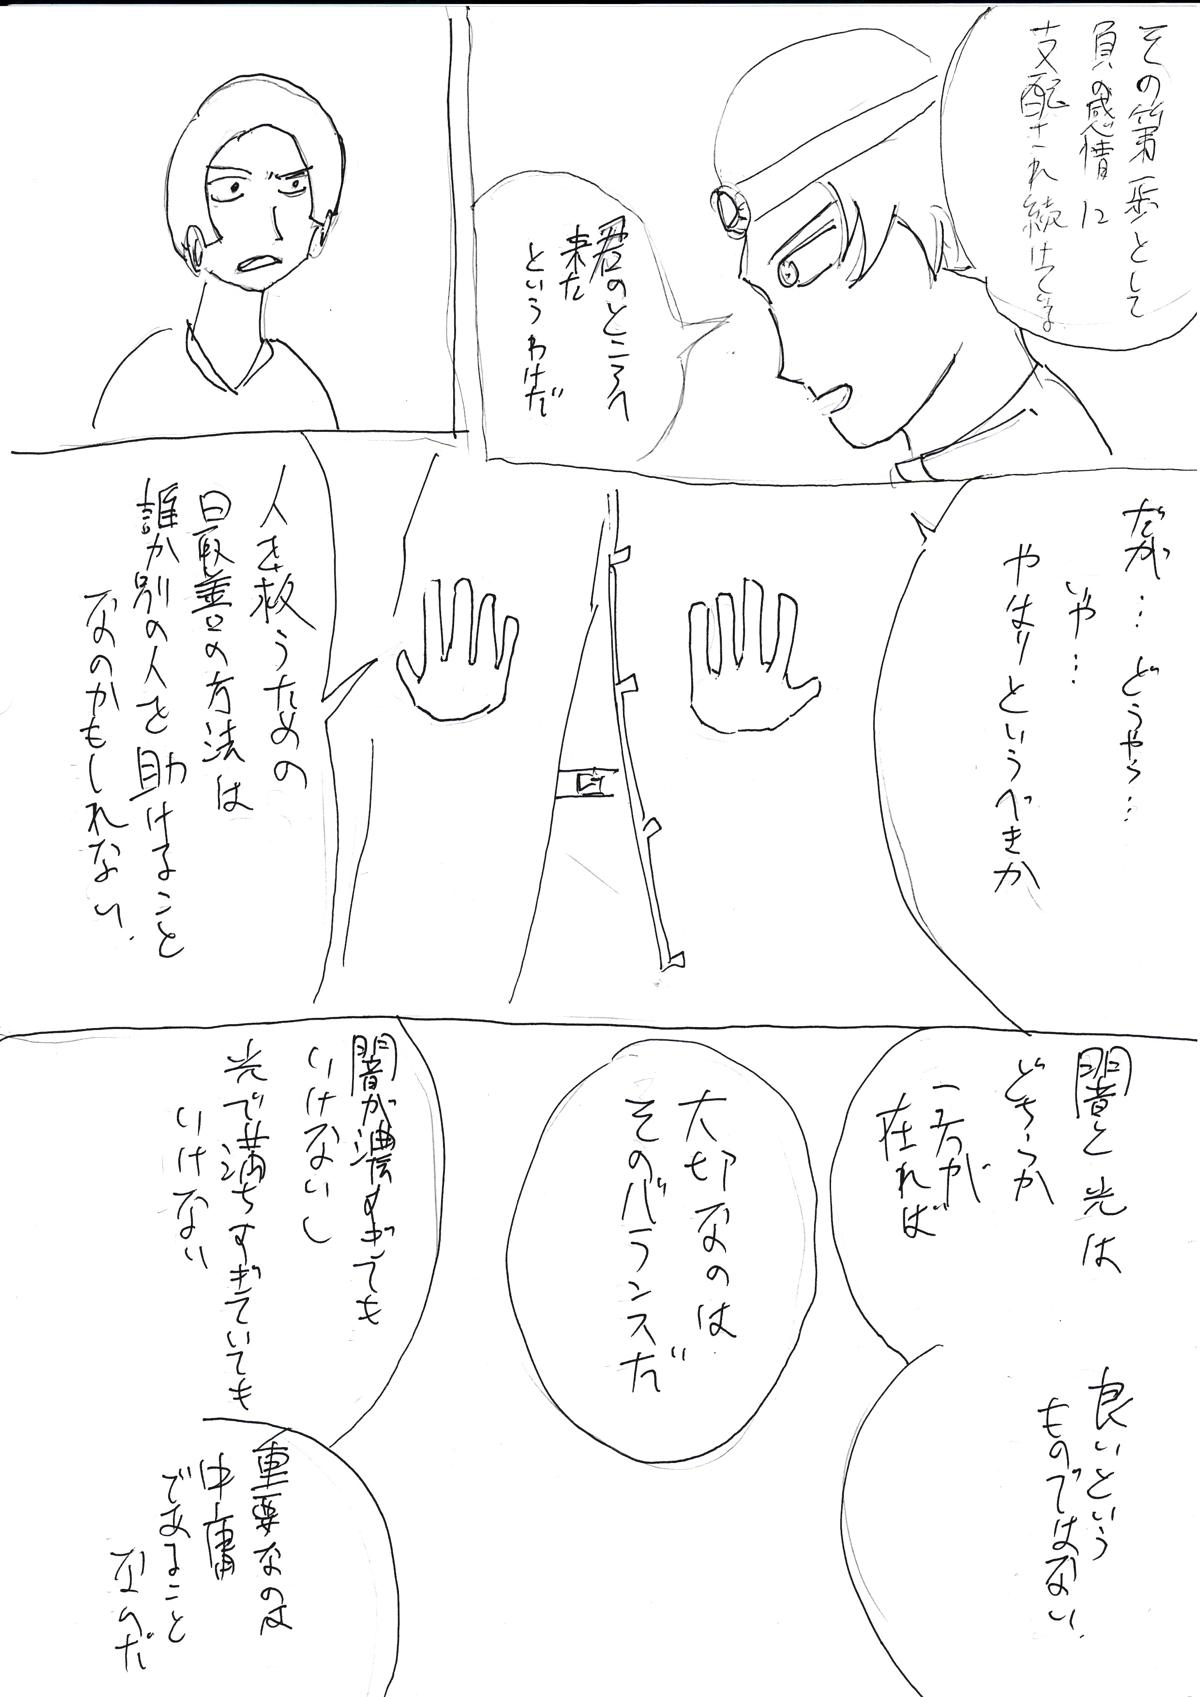 その第一歩として
負の感情に
支配され続けてる
君のところへ
来た
というわけだ
だが…どうやら…
いや…
やはりというべきか
人を救うための
最善の方法は
誰か別の人を助けること
なのかもしれない.
闇と光は
どちらか
一方が
在れば
良いという
ものではない.
大切なのは
そのバランスだ
闇が濃すぎても
いけないし
光で満ちすぎていても
いけない
重要なのは
中庸
であること
なのだ